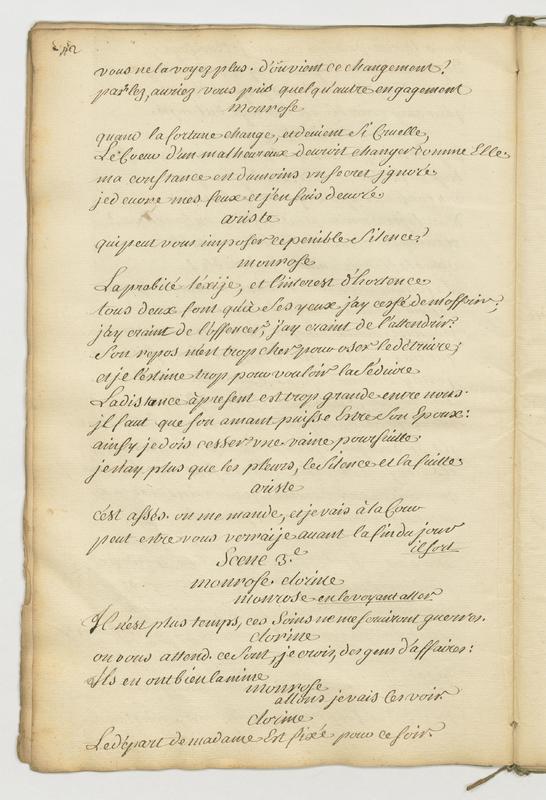 vous ne la voyez plus. d'où vient ce changement?
parlez, auriez vous pris quelqu'autre engagement
monrose
quand la fortune change, et devient si Cruelle,
Le Coeur d'un malheureux devroit changer comme Elle
ma constance est du moins un secret ignoré
je devore mes feux et j'en suis devoré
ariste
qui peut vous imposer ce penible silence?
monrose
La probité l'exije, et l'interest d'hortence
tous deux font qu'à ses yeux j'ay cessé de m'offrir,
j'ay craint de l'offencer, j'ay craint de l'attendrir:
Son repos m'est trop cher pour oser le détruire;
et je l'estime trop pour vouloir la séduire
La distance àpresent est trop grande entre nous.
jl faut que son amant puisse Estre Son Epoux:
ainsy je dois cesser une vaine poursuitte
je n'ay plus que les pleurs, le silence et la fuitte
ariste
c'est assés. on me mande, et je vais à la Cour
peut estre vous verrai je avant la fin du jour
il sort
Scene 3.e
monrose. dorine
monrose en le voyant aller
Il n'est plus temps, ces soins ne me serviront gueres.
dorine
on vous attend. ce sont, je crois, des gens d'affaires:
Ils en ont bien la mine
monrose
allons je vais les voir
dorine
Le départ de madame Est fixé pour ce soir